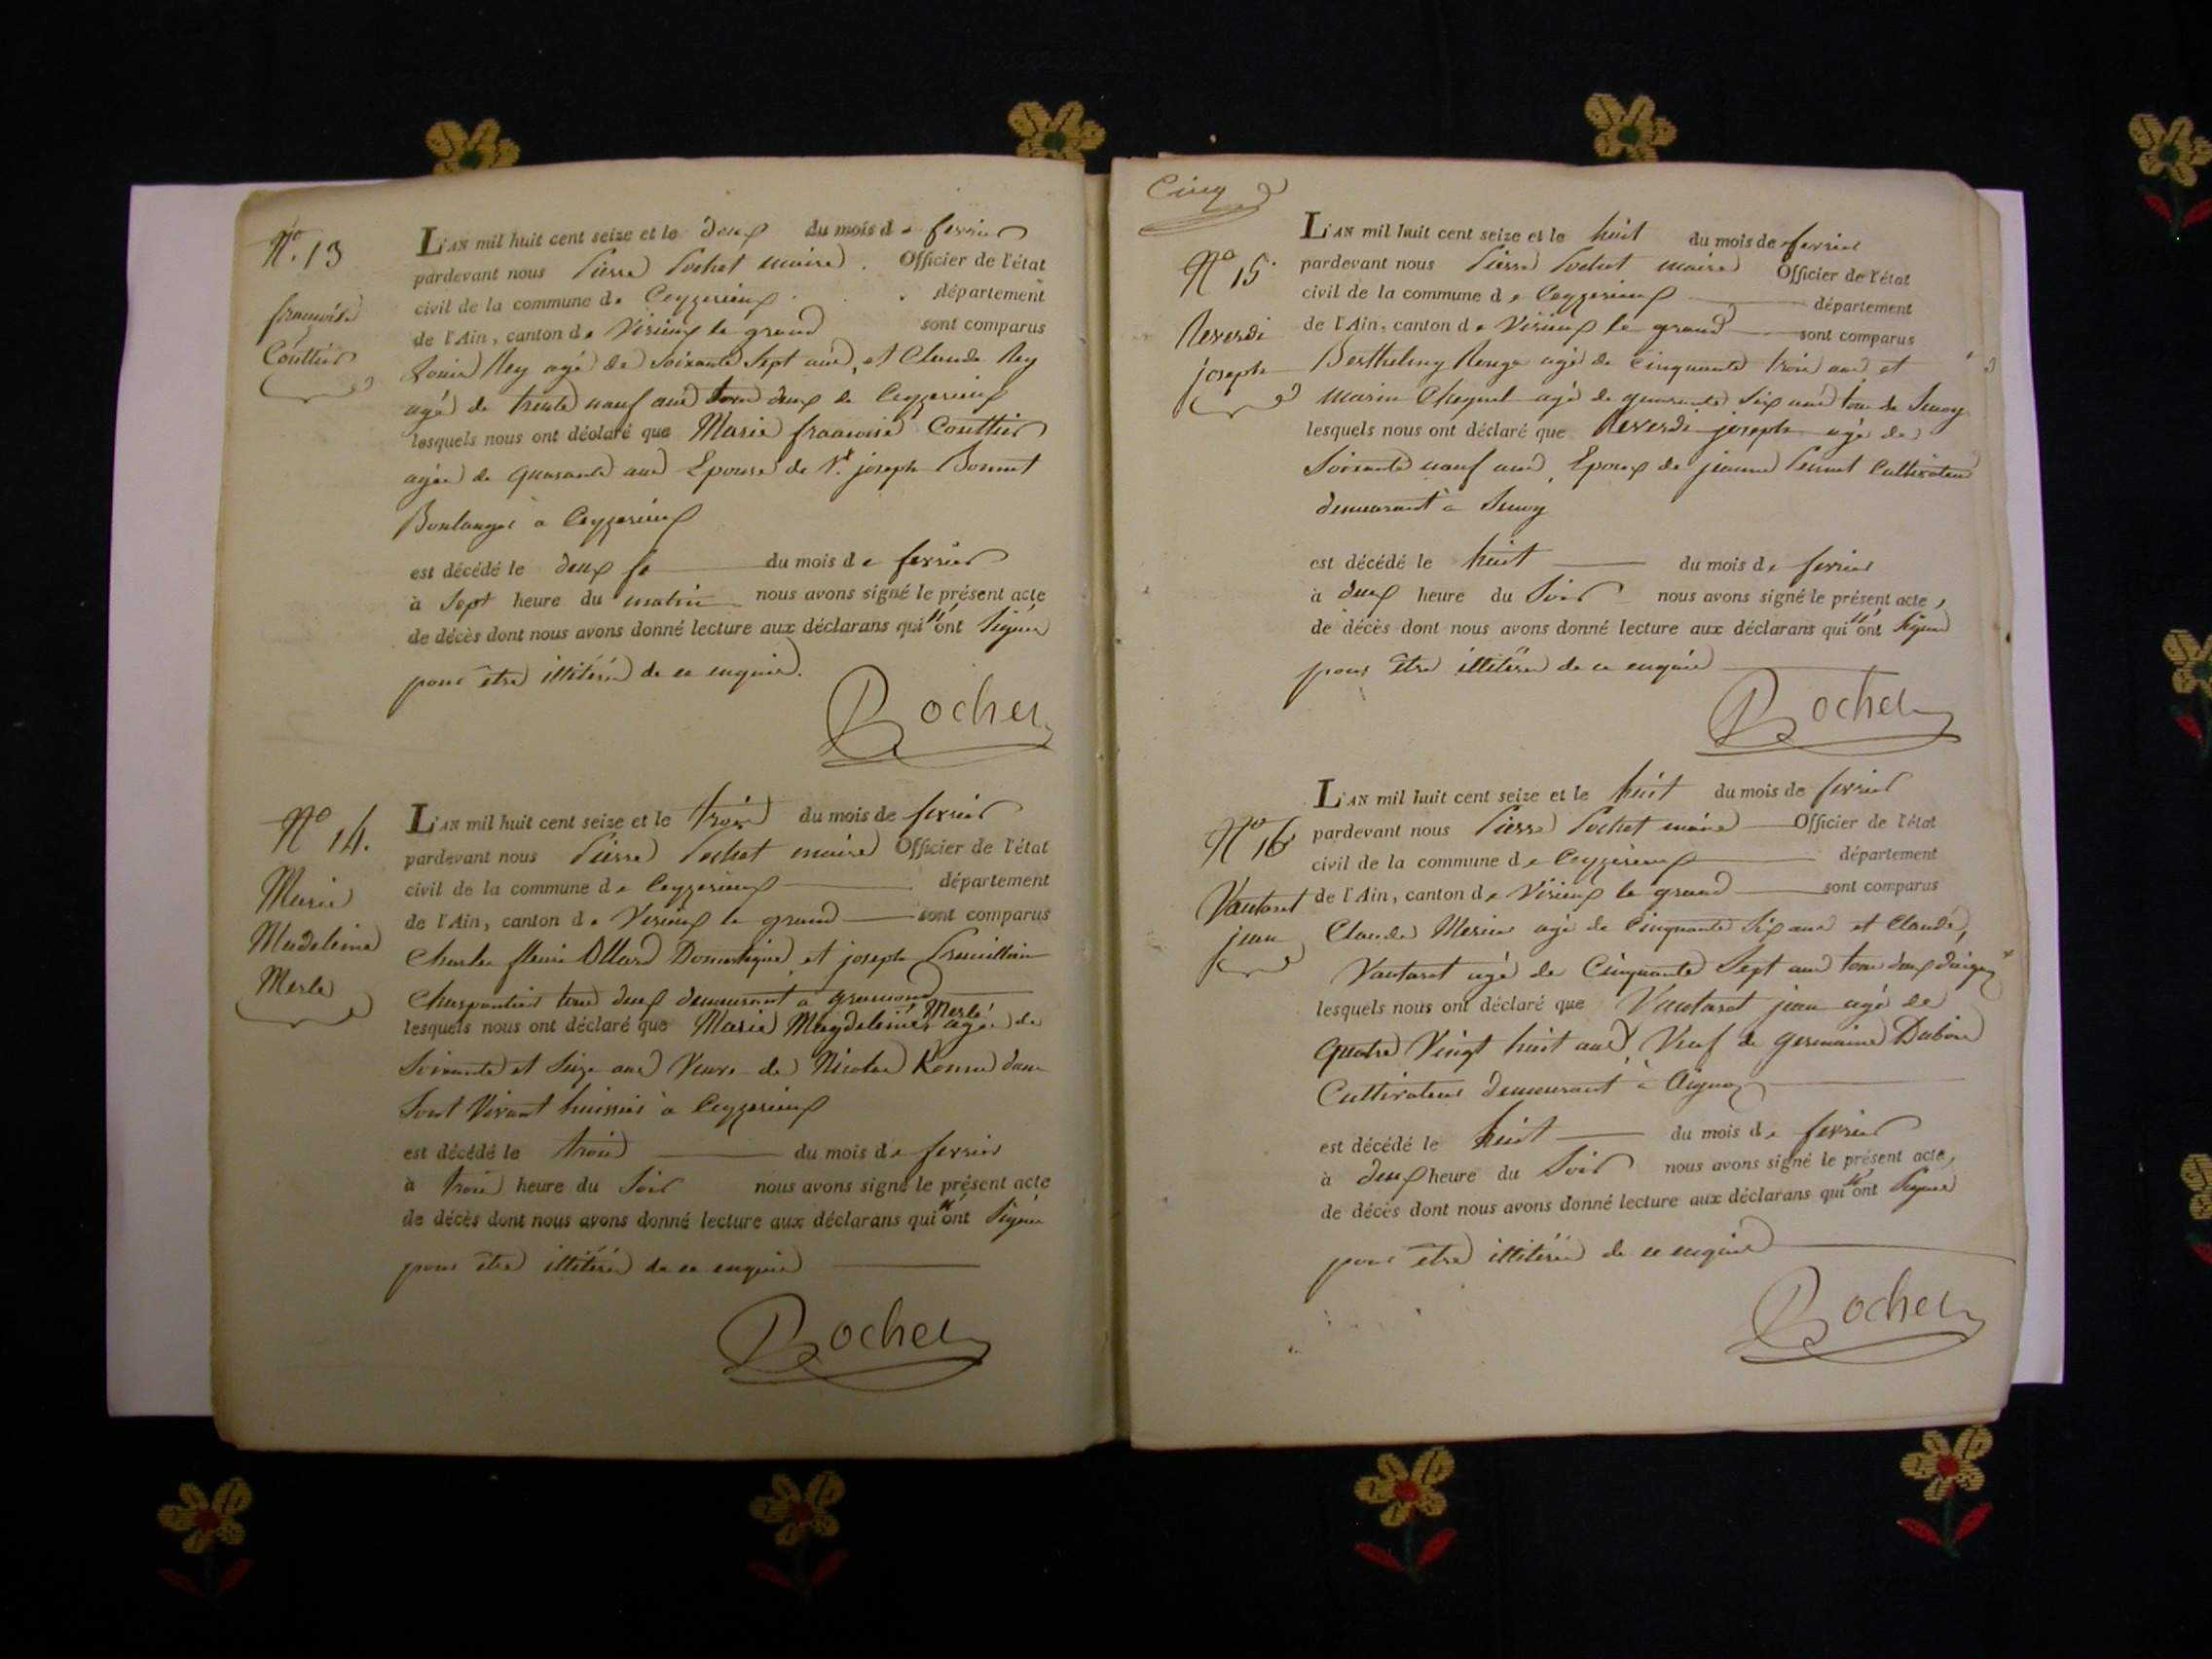 N.º 13
françoise
Couttier
L'AN mil huit cent seize et le deux du mois de fevrier
pardevant nous Pierre Pochet maire Officier de l'état
civil de la commune de Ceyzerieux département
de l'Ain, canton de Virieux le grand sont comparus
Louis Rey agé de Soixante Sept ans, et Claude Rey
agé de trente nauf ans tous deux de Ceyzerieux
lesquels nous ont déclaré que Marie françoise Couttier
agée de quarante ans Epouse de Sr. joseph Bonnet
Boulanger a Ceyzerieux
est décédé le deux fe du mois de fevrier
à Sept heure du matin nous avons signé le présent acte
de décès dont nous avons donné lecture aux déclarans qui n'ont Signé
pour être illitéré de ce enquis.
Pochet
Nº 14.
Marie
Madeleine
Merle
L'AN mil huit cent seize et le trois du mois de fevrier
pardevant nous Pierre Pochet maire Officier de l'état
civil de la commune de Ceyzerieux département
de l'Ain, canton de Virieux le grand sont comparus
Charles Ollard Domestique et joseph
Charpantier tous deux demeurant a
lesquels nous ont déclaré que Marie Magdeleine Merle agée de
Soixante et Seize ans Veuve de Nicolas
Vivant huissier a Ceyzerieux
est décédé le trois du mois de fevrier
à trois heure du Soir nous avons signé le présent acte
de décès dont nous avons donné lecture aux déclarans qui n'ont Signé
pour être illitéré de ce enquis
Pochet
Cinq
Nº 15
Reverdi
joseph
L'AN mil huit cent seize et le huit du mois de fevrier
pardevant nous Pierre Pochet maire Officier de l'état
civil de la commune de Ceyzerieux département
de l'Ain, canton de Virieux le grand sont comparus
Berthelemy Rouge agé de Cinquante trois ans et
Marin agé de quarante Six ans tous de
lesquels nous ont déclaré que Reverdi joseph agé de
Soixante nauf ans, Epoux de jeanne Cultivateur
demeurant à
est décédé le huit du mois de fevrier
à deux heure du Soir nous avons signé le présent acte,
de décès dont nous avons donné lecture aux déclarans qui n'ont Signé
pour être illitéré de ce enquis
Pochet
Nº 16
Vautaret
jean
L'AN mil huit cent seize et le huit du mois de fevrier
pardevant nous Pierre Pochet maire Officier de l'état
civil de la commune de Ceyzerieux département
de l'Ain, canton de Virieux le grand sont comparus
Claude agé de Cinquante Six ans et Claude,
Vautaret agé de Cinquante Sept ans tous deux
lesquels nous ont déclaré que Vautaret jean agé de
Quatre Vingt huit ans, Veuf de germaine Dubois
Cultivateur demeurant à Aignoz
est décédé le huit du mois de fevrier
à deux heure du Soir nous avons signé le présent acte,
de décès dont nous avons donné lecture aux déclarans qui n'ont Signé
pour être illitéré de ce enquis
Pochet